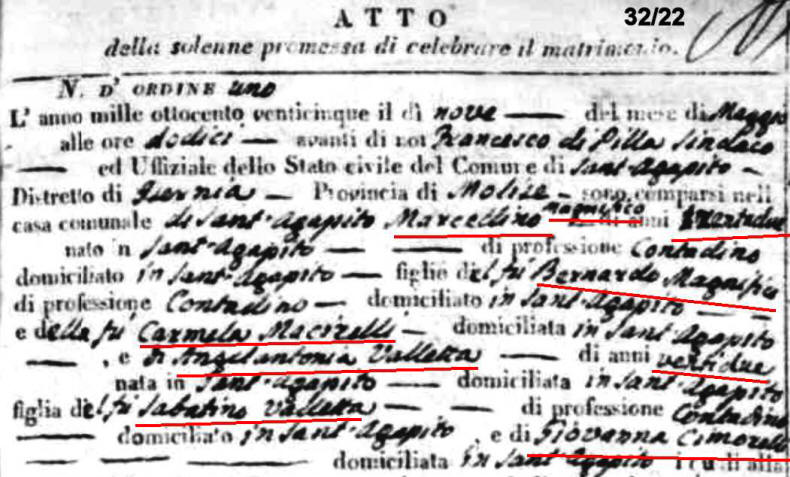 ATTO 32/22
della solenne promessa di celebrare il matrimonio.
N. D'ORDINE uno
L'anno mille ottocento venticinque il dì nove del mese di Maggio
alle ore dodici avanti di noi Francesco di Pilla Sindaco
ed Uffiziale dello Stato civile del Comune di Sant'Agapito
Distretto di Isernia Provincia di Molise sono comparsi nell
casa comunale di Sant'Agapito Marcellino Magnifico di anni trentadue
nato in Sant'Agapito di professione Contadino
domiciliato in Sant'Agapito figlio del fu Bernardo Magnifico
di professione Contadino domiciliato in Sant'Agapito
e della fu Carmela Macirelli domiciliata in Sant'Agapito
, e di Angelantonia Valletta di anni ventidue
nata in Sant'Agapito domiciliata in Sant'Agapito
figlia del fu Sabatino Valletta di professione Contadino
domiciliato in Sant'Agapito , e di Giovanna Cimorelli
domiciliata in Sant'Agapito